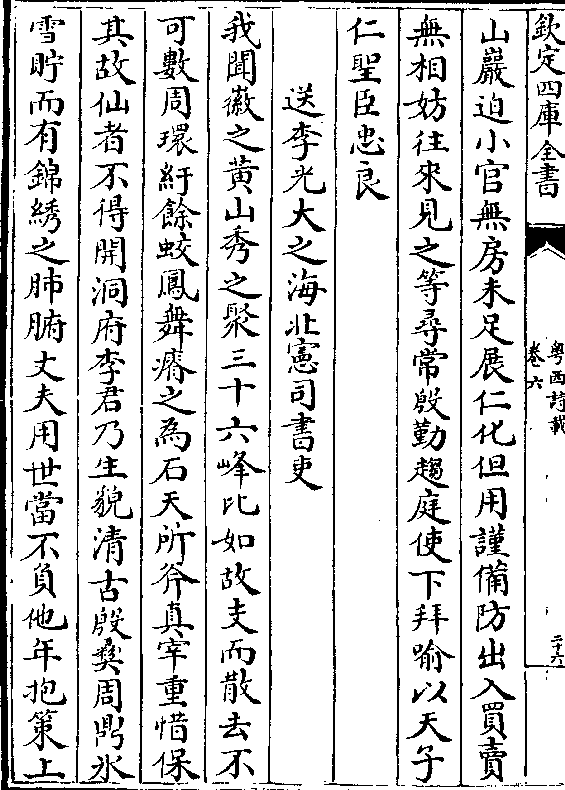 欽定四庫全書
粤西詩載
卷六
二十六
山巖迫小官無房未足展仁化但用謹備防出入買賣
無相妨往來見之等尋常殷勤趨庭使下拜喻以天子
仁聖臣忠良
送李光大之海北憲司書吏
我聞徽之黄山秀之聚三十六峰比如故而散去不
可數周環紆餘蛟鳳舞瘠之為石天所斧真宰重惜保
其故仙者不得開洞府李君乃生貌清古殷彝周鼎氷
雪貯而有錦綉之肺腑丈夫用世當不負他年抱策上